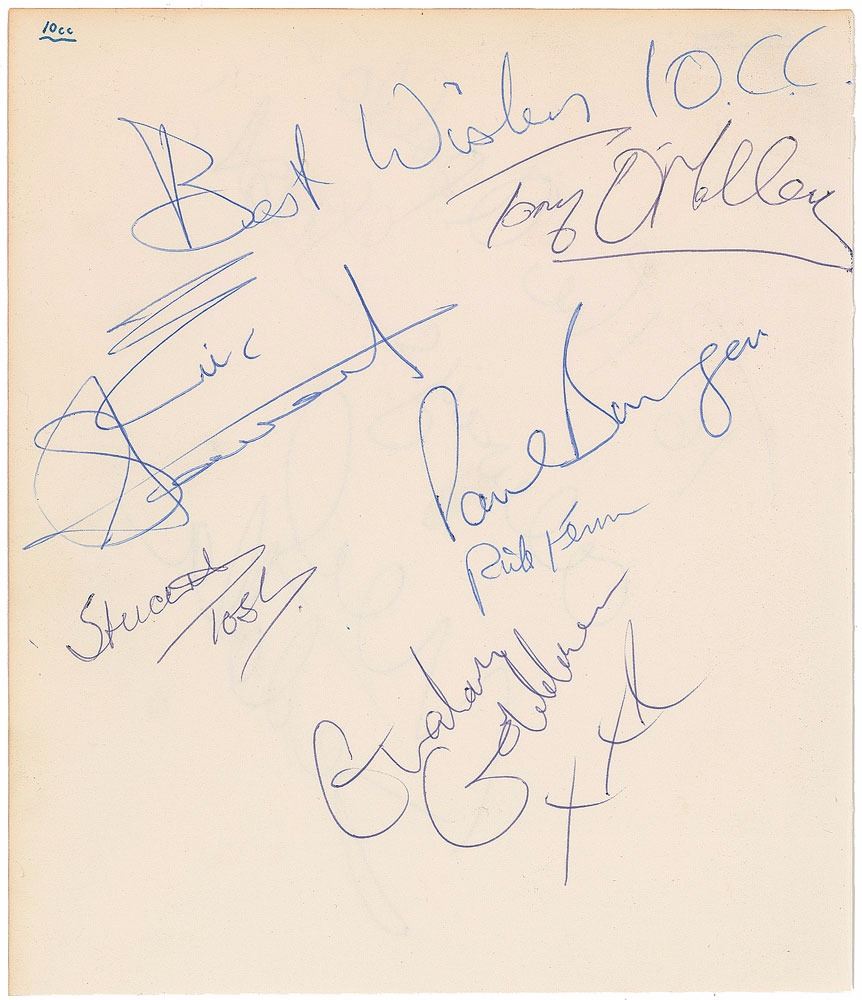 10cc
Best Wishes 10.C.C.
Tony O'Malley
Eric
Stewart
Paul Burgess
Rick Fenn
Stuart
Tosh
Graham
Gouldman